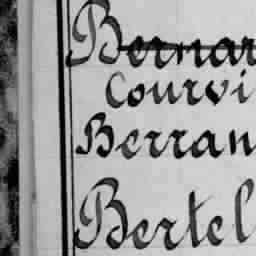 Bernar
Courvi
Berran
Bertel